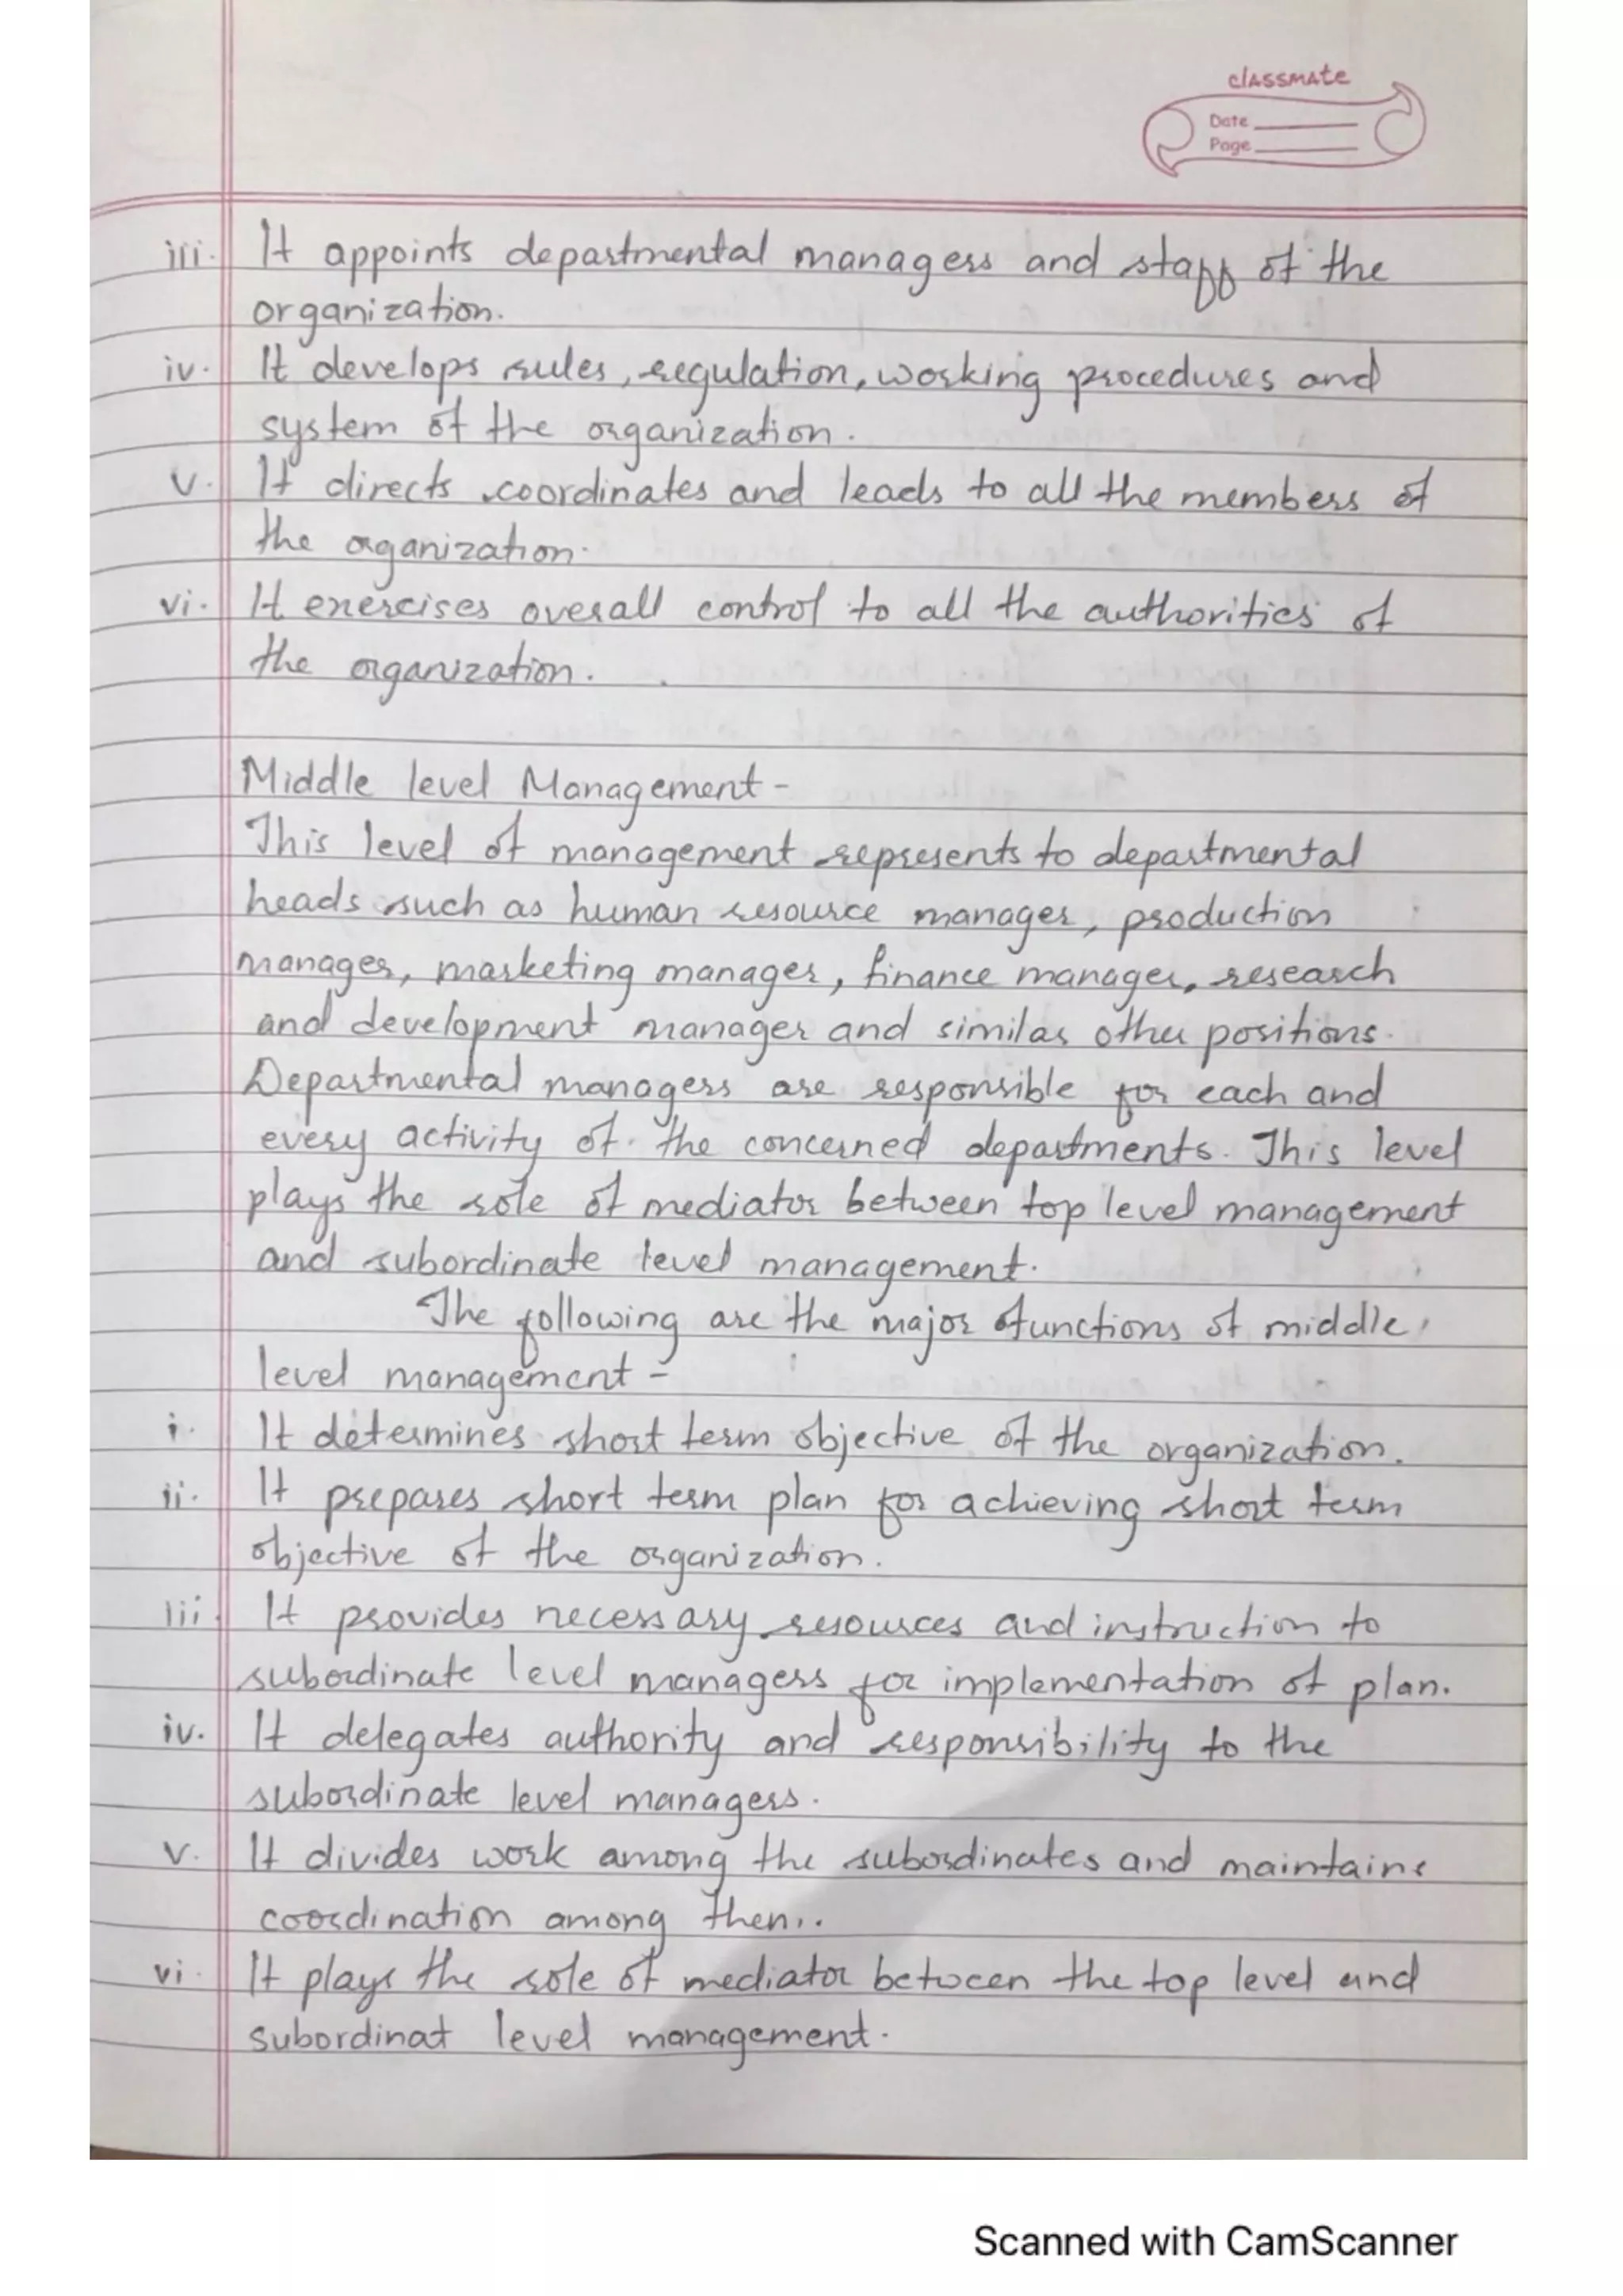 classmate
Date
Page
iii. It appoints departmental managers and staff of the
organization.
iv. It develops rules, regulation, working procedures and
system of the organization.
v. It directs, coordinates and leads to all the members of
the organization.
vi. It exercises overall control to all the authorities of
the organization.
Middle level Management -
This level of management represents to departmental
heads such as human resource manager, production
manager, marketing manager, finance manager, research
and development manager and similar other positions.
Departmental managers are responsible for each and
every activity of the concerned departments. This level
plays the role of mediator between top level management
and subordinate level management.
The following are the major functions of middle
level management -
i. It determines short term objective of the organization.
ii. It prepares short term plan for achieving short term
objective of the organization.
iii. It provides necessary resources and instruction to
subordinate level managers for implementation of plan.
iv. It delegates authority and responsibility to the
subordinate level managers.
v. It divides work among the subordinates and maintains
coordination among them.
vi. It plays the role of mediator between the top level and
subordinat level management.
Scanned with CamScanner